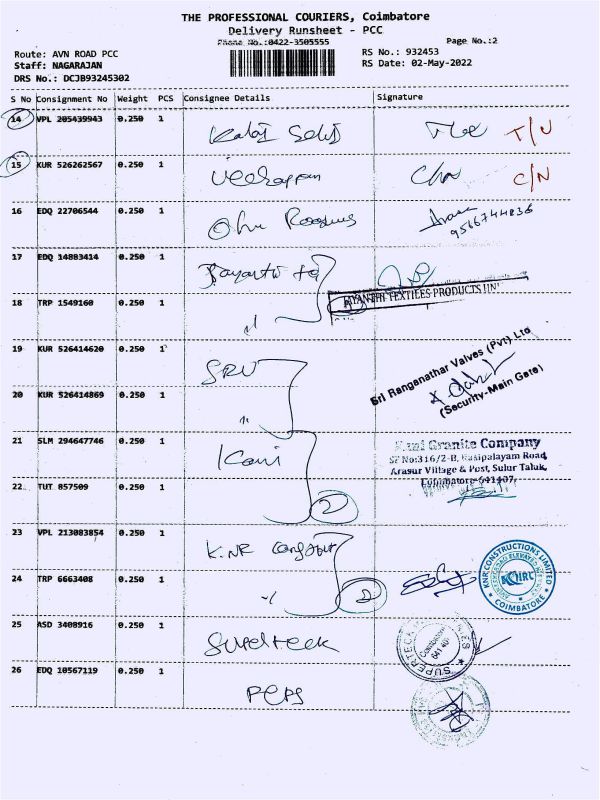 THE PROFESSIONAL COURIERS, Coimbatore
Delivery Runsheet - PCC
Phone No.:0422-3505555
Page No.:2
Route: AVN ROAD PCC
Staff: NAGARAJAN
DRS No.: DCJB93245302
RS No.: 932453
RS Date: 02-May-2022
S No Consignment No Weight PCS Consignee Details Signature
14 VPL 205439943 0.250 1 T/U
15 KUR 526262567 0.250 1 C/N
16 EDQ 22706544 0.250 1
9566744836
17 EDQ 14883414 0.250 1
18 TRP 1549160 0.250 1
JAYANTHI TEXTILES PRODUCTS
19 KUR 526414620 0.250 1 SRV
Sri Ranganathar Valves (Pvt) Ltd
(Security-Main Gate)
20 KUR 526414869 0.250 1 "
21 SLM 294647746 0.250 1 Kani
Kani Granite Company
SF No:316/2-B, Rasipalayam Road,
Arasur Village & Post, Sulur Taluk,
Coimbatore-641407.
22 TUT 857509 0.250 1 2
23 VPL 213083854 0.250 1 K.NR
24 TRP 6663408 0.250 1 2
KNR CONSTRUCTIONS LIMITED
KNRCL
COIMBATORE
25 ASD 3408916 0.250 1 Superteck
SUPERTECK
Coimbatore
26 EDQ 10567119 0.250 1 Peps